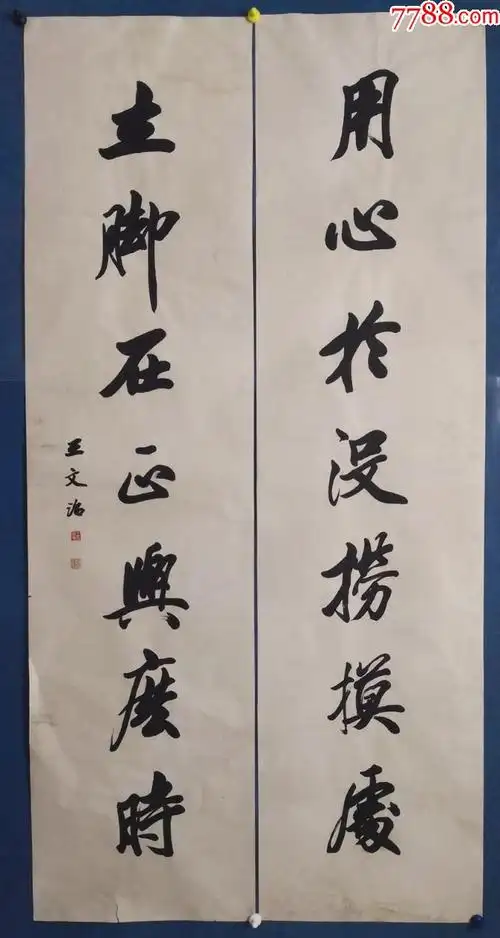 7788.com
用心於没撈摸處
立脚在正與麽時
王文治